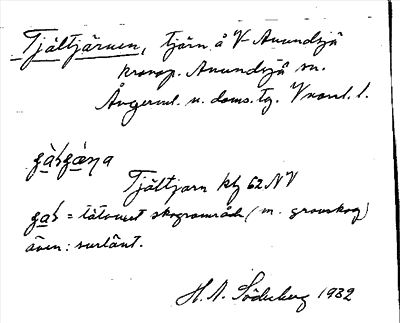 Tjältjärnen, tjärn å V Anundsjö
kronop. Anundsjö sn.
Ångerml. n. doms. tg. Vnorrl. l.
Tjältjärn kbl 62 NV
= tätvuxet skogsområde (m. granskog)
även: surlänt.
H. A. Söderberg 1932